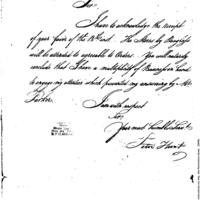 Sir
I have to acknowledge the receipt
of your favor of the 18th inst. The Stores by
will be attended to agreeable to Orders. You will naturally
conclude that I have a multiplicity of Business on hand
to engage my attention which prevented my answering by
I am with respect
Sir
Your most humble Servt
Peter